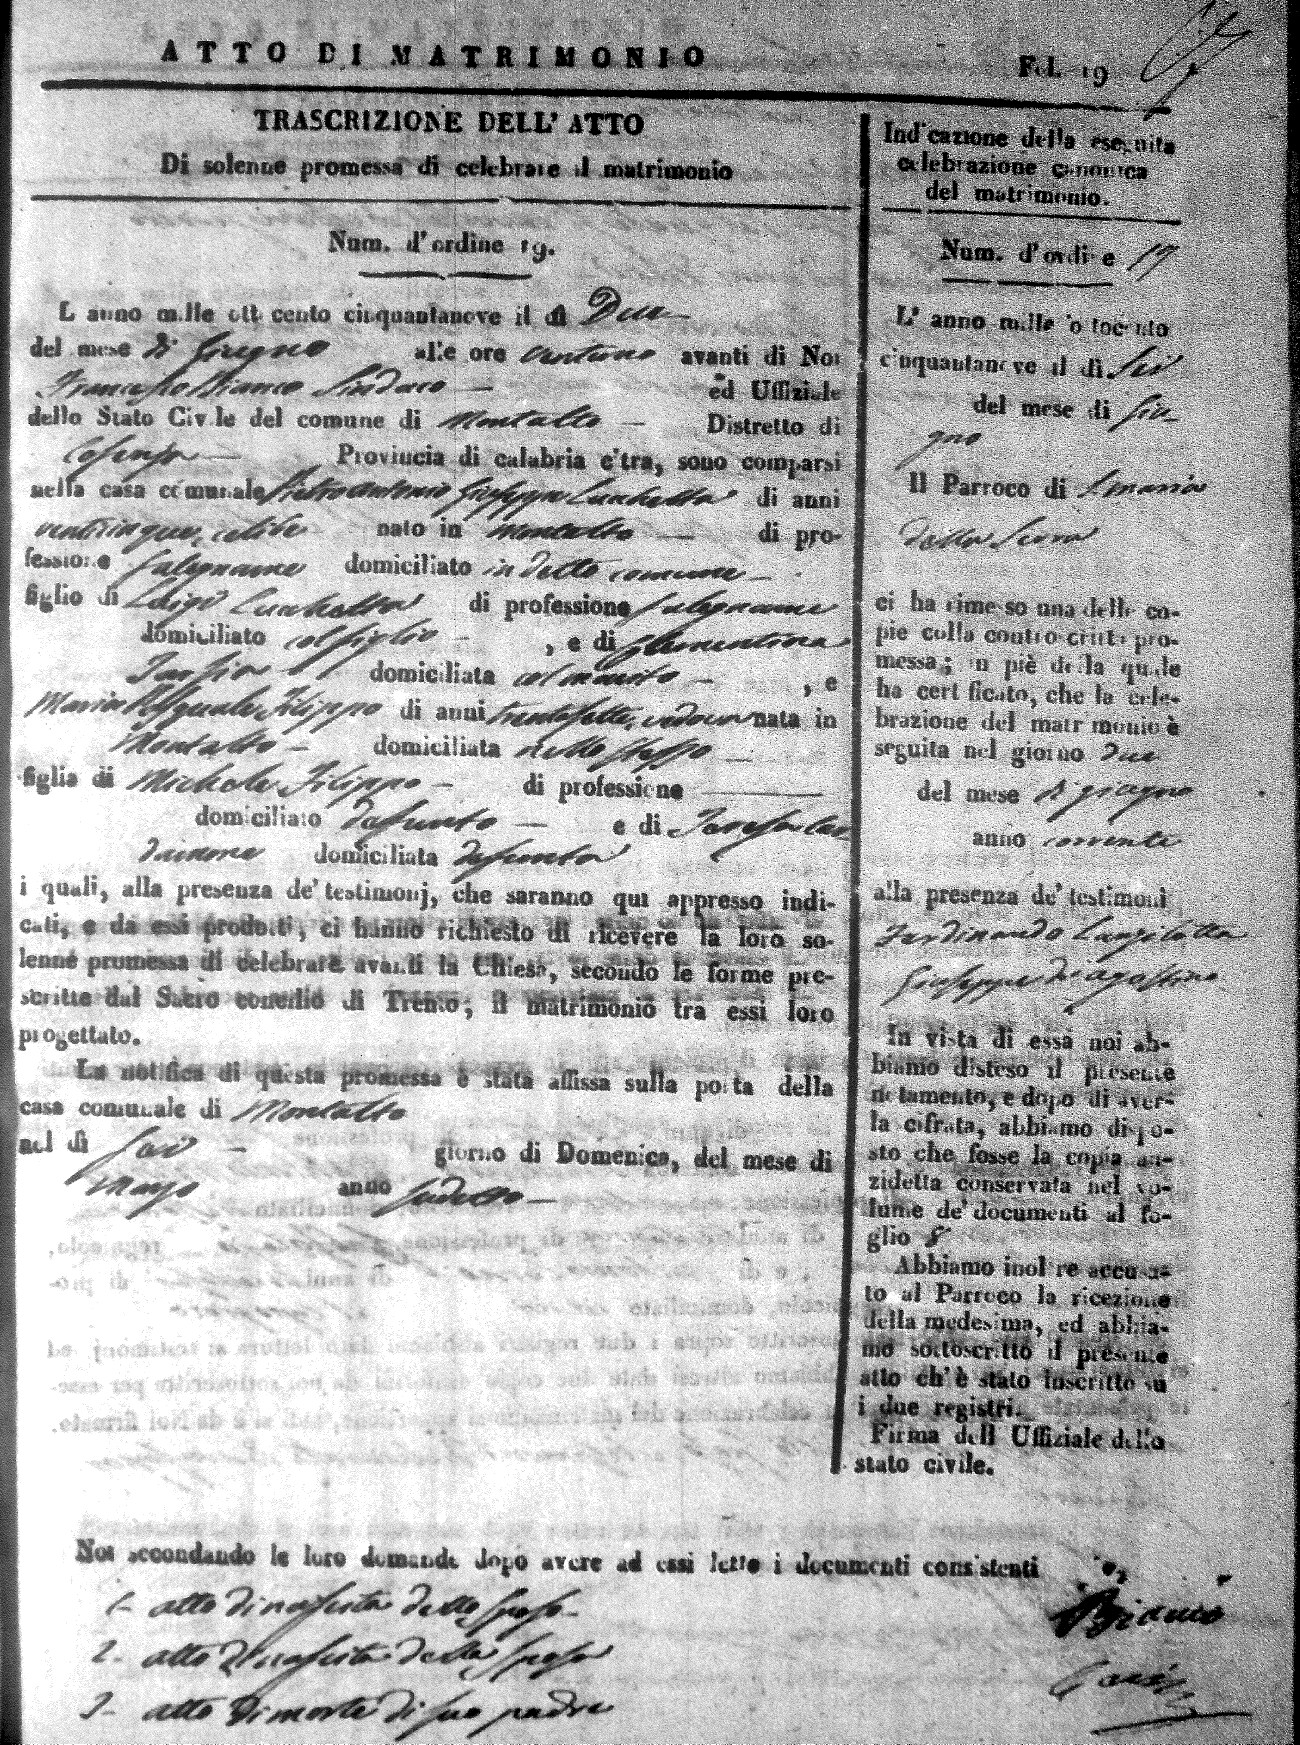 ATTO DI MATRIMONIO
Fol. 19
TRASCRIZIONE DELL' ATTO
Di solenne promessa di celebrare il matrimonio
Num. d'ordine 19.
L' anno mille otto cento cinquantanove il dì Due
del mese di Giugno alle ore ventuno avanti di Noi
Francesco Bianco Sindaco ed Uffiziale
dello Stato Civile del comune di Montalto Distretto di
Cosenza Provincia di calabria c'tra, sono comparsi
nella casa comunale Pietrantonio Giuseppe Lucchetta di anni
venticinque, celibe nato in Montalto di pro-
fessione falegname domiciliato in detto comune
figlio di Luigi Lucchetta di professione falegname
domiciliato col figlio , e di Clementina
domiciliata col marito , e
Maria Pasquale Filippo di anni trentasette, vedova nata in
Montalto domiciliata nello stesso
figlia di Michele Filippo di professione
domiciliato defunto e di
domiciliata defunta
i quali, alla presenza de' testimonj, che saranno qui appresso indi-
cati, e da essi prodotti, ci hanno richiesto di ricevere la loro so-
lenne promessa di celebrare avanti la Chiesa, secondo le forme pre-
scritte dal Sacro concilio di Trento; il matrimonio tra essi loro
progettato.
La notifica di questa promessa è stata affissa sulla porta della
casa comunale di Montalto
nel dì giorno di Domenica, del mese di
Maggio anno sudetto
Noi secondando le loro domande dopo avere ad essi letto i documenti consistenti
1- atto di nascita dello sposo
2- atto di nascita della sposa
3- atto di morte di suo padre
Indicazione della eseguita
celebrazione canonica
del matrimonio.
Num. d'ordi e 19
L' anno mille o tocento
cinquantanove il dì Sei
del mese di Giu-
gno
Il Parroco di S. Maria
della Serra
ci ha rimesso una delle co-
pie colla controscritta pro-
messa; in piè de la quale
ha certificato, che la cele-
brazione del matrimonio è
seguita nel giorno due
del mese di giugno
anno corrente
alla presenza de' testimoni
Ferdinando
Giuseppe di agostino
In vista di essa noi ab-
biamo disteso il presente
notamento, e dopo di aver-
la cifrata, abbiamo dispo-
sto che fosse la copia an-
zidetta conservata nel vo-
lume de' documenti al fo-
glio 8
Abbiamo inoltre accusa-
to al Parroco la ricezione
della medesima, ed abbia-
mo sottoscritto il presente
atto ch'è stato inscritto su
i due registri.
Firma dell Uffiziale dello
stato civile.
Bianco